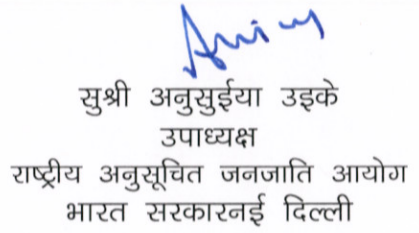 सुश्री अनुसुईया उइके
उपाध्यक्ष
राष्ट्रीय अनुसूचित जनजाति आयोग
भारत सरकारनई दिल्ली